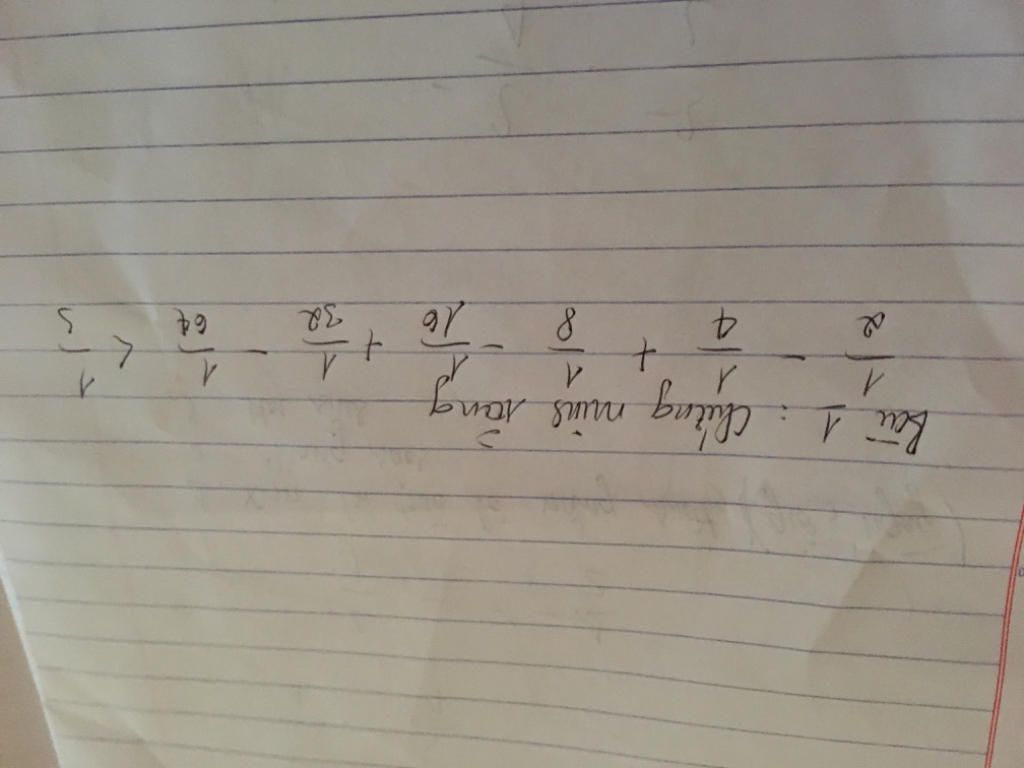 Bài 1 : Chứng minh rằng
1/2 - 1/4 + 1/8 - 1/16 + 1/32 - 1/64 < 1/3